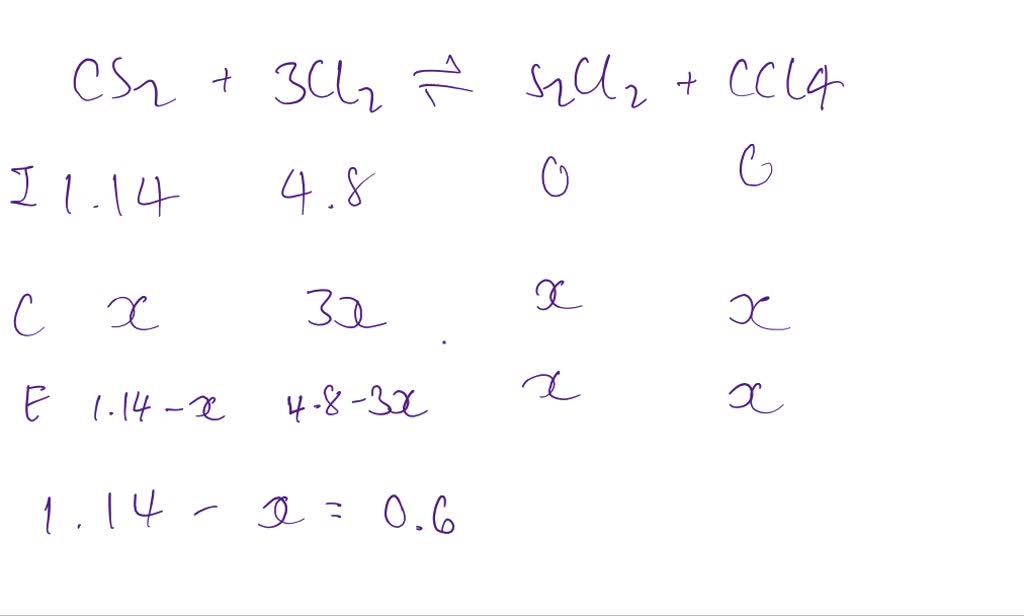 CS2 + 3Cl2 ⇌ S2Cl2 + CCl4
I 1.14 4.8 0 0
C x 3x x x
E 1.14 - x 4.8 - 3x x x
1.14 - x = 0.6